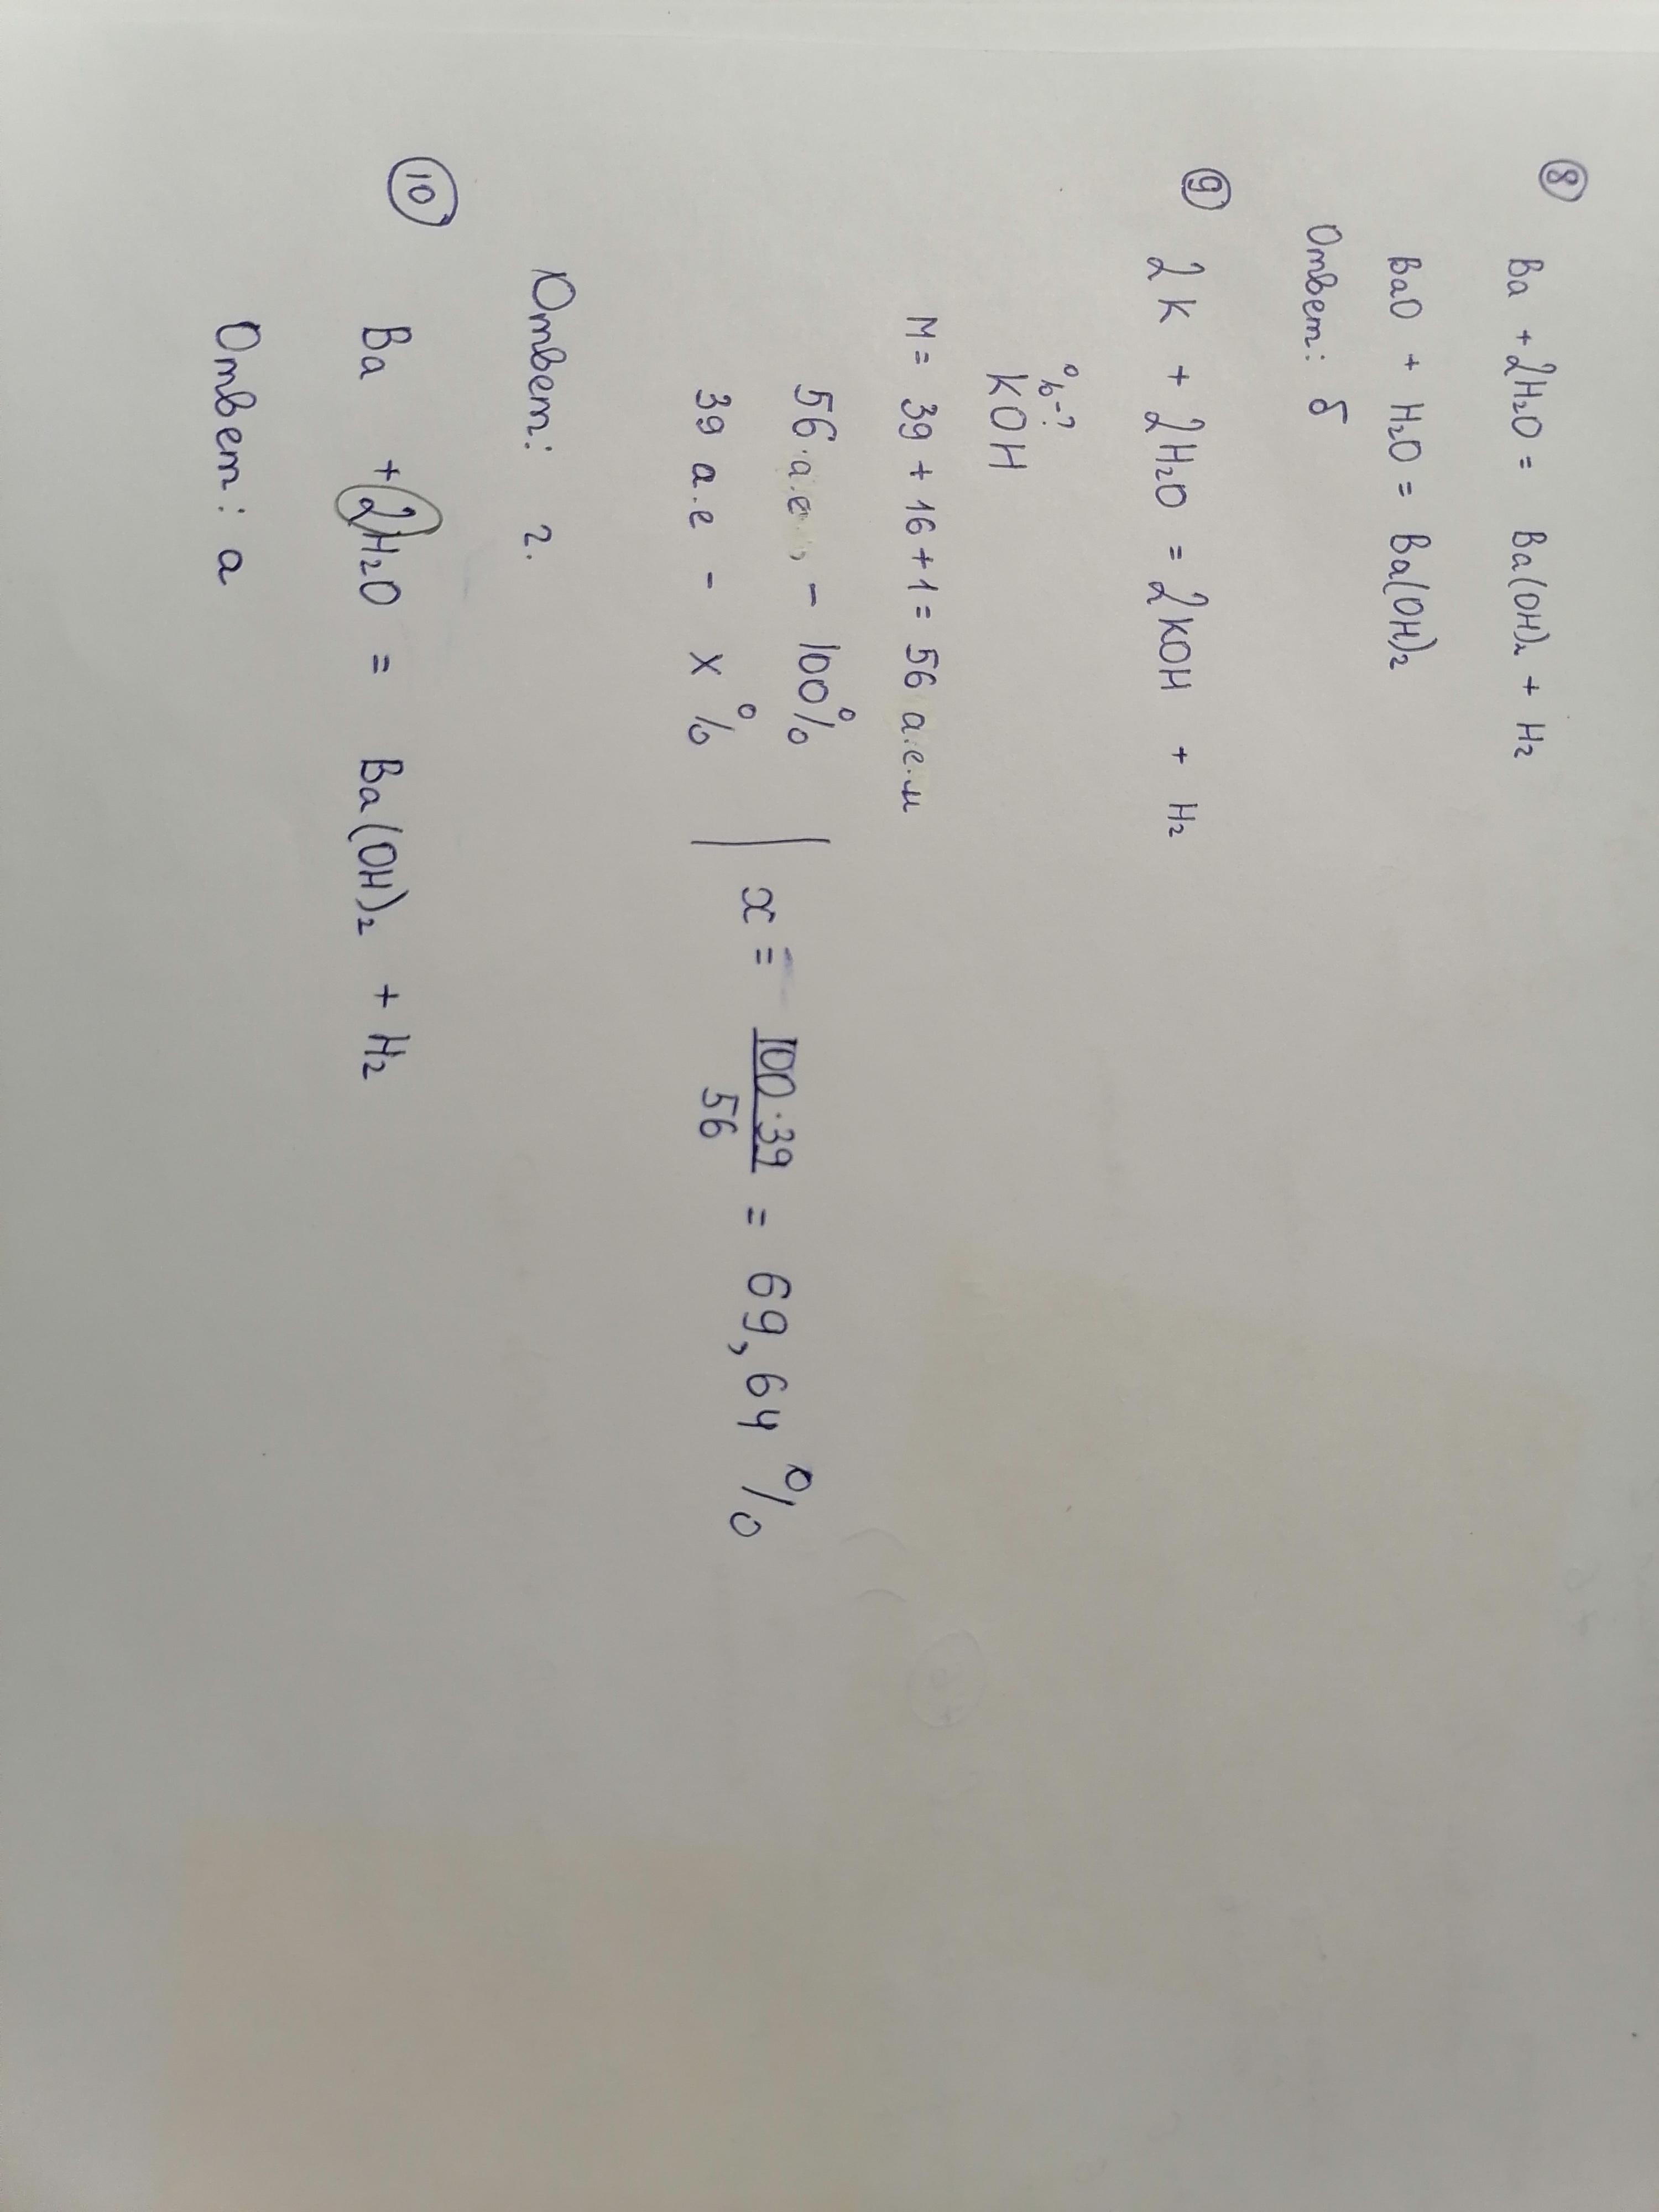 8 Ba + 2H₂O = Ba(OH)₂ + H₂
BaO + H₂O = Ba(OH)₂
Ответ: б
9 2K + 2H₂O = 2KOH + H₂
%-?
KOH
M = 39 + 16 + 1 = 56 а.е.м
56 а.е. - 100%
39 а.е - x %
x = 100·39/56 = 69,64 %
Ответ: г.
10 Ba + 2H₂O = Ba(OH)₂ + H₂
Ответ: а